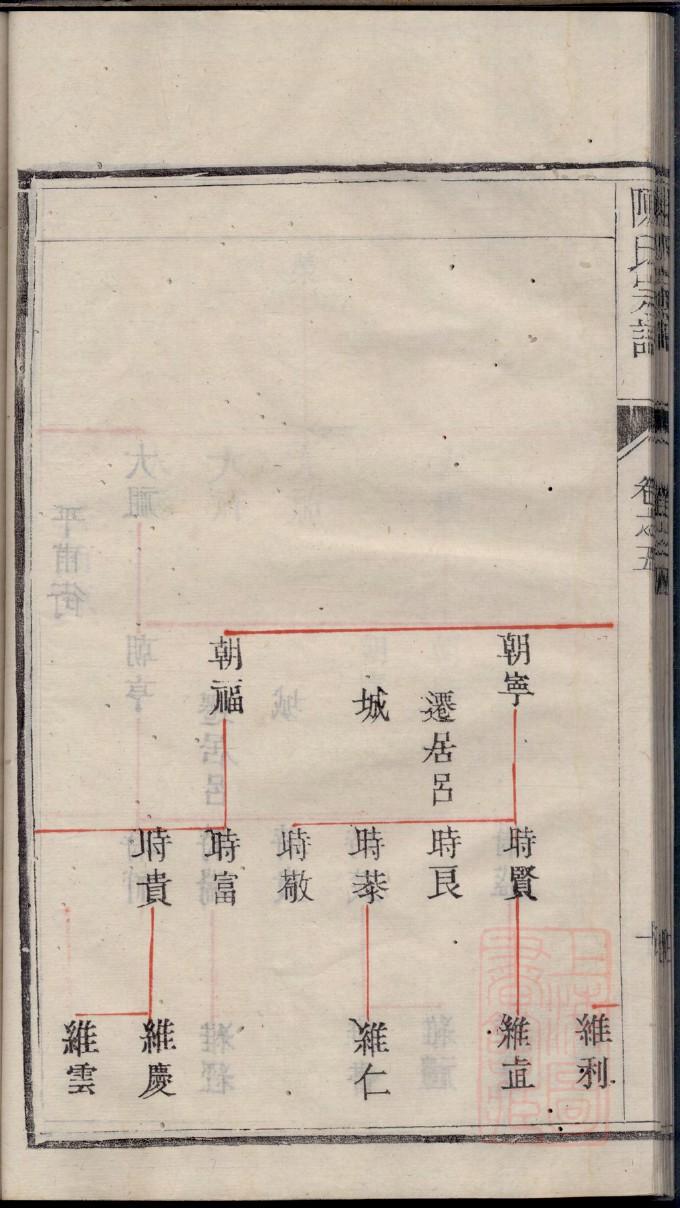 陳氏宗譜
卷之五
朝寧
遷居呂
城
朝福
時賢
時良
時恭
時敬
時富
時貴
維利
維直
維仁
維慶
維雲